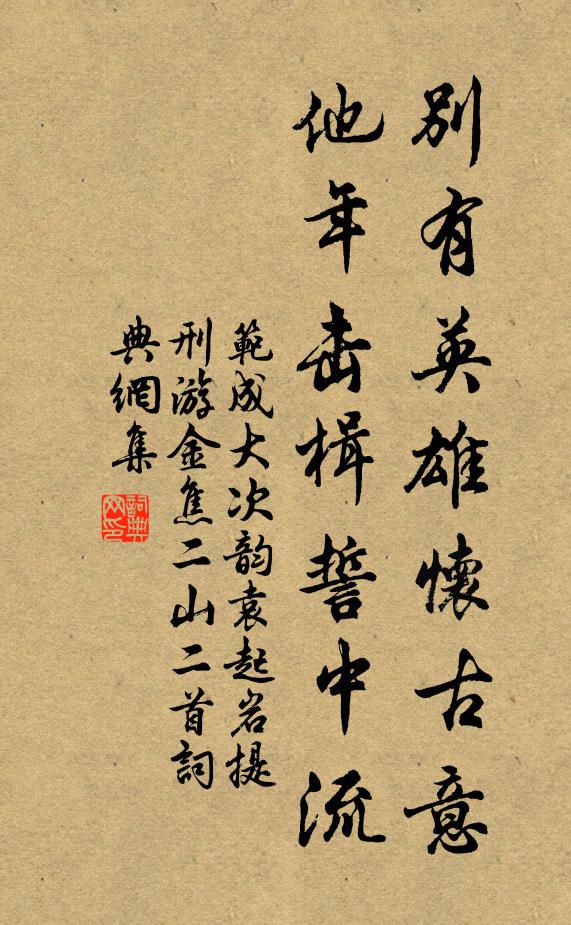 別有英雄懷古意
他年击楫誓中流
範成大次韵袁起岩提
刑游金焦二山二首詞
典網集
詞典
网印